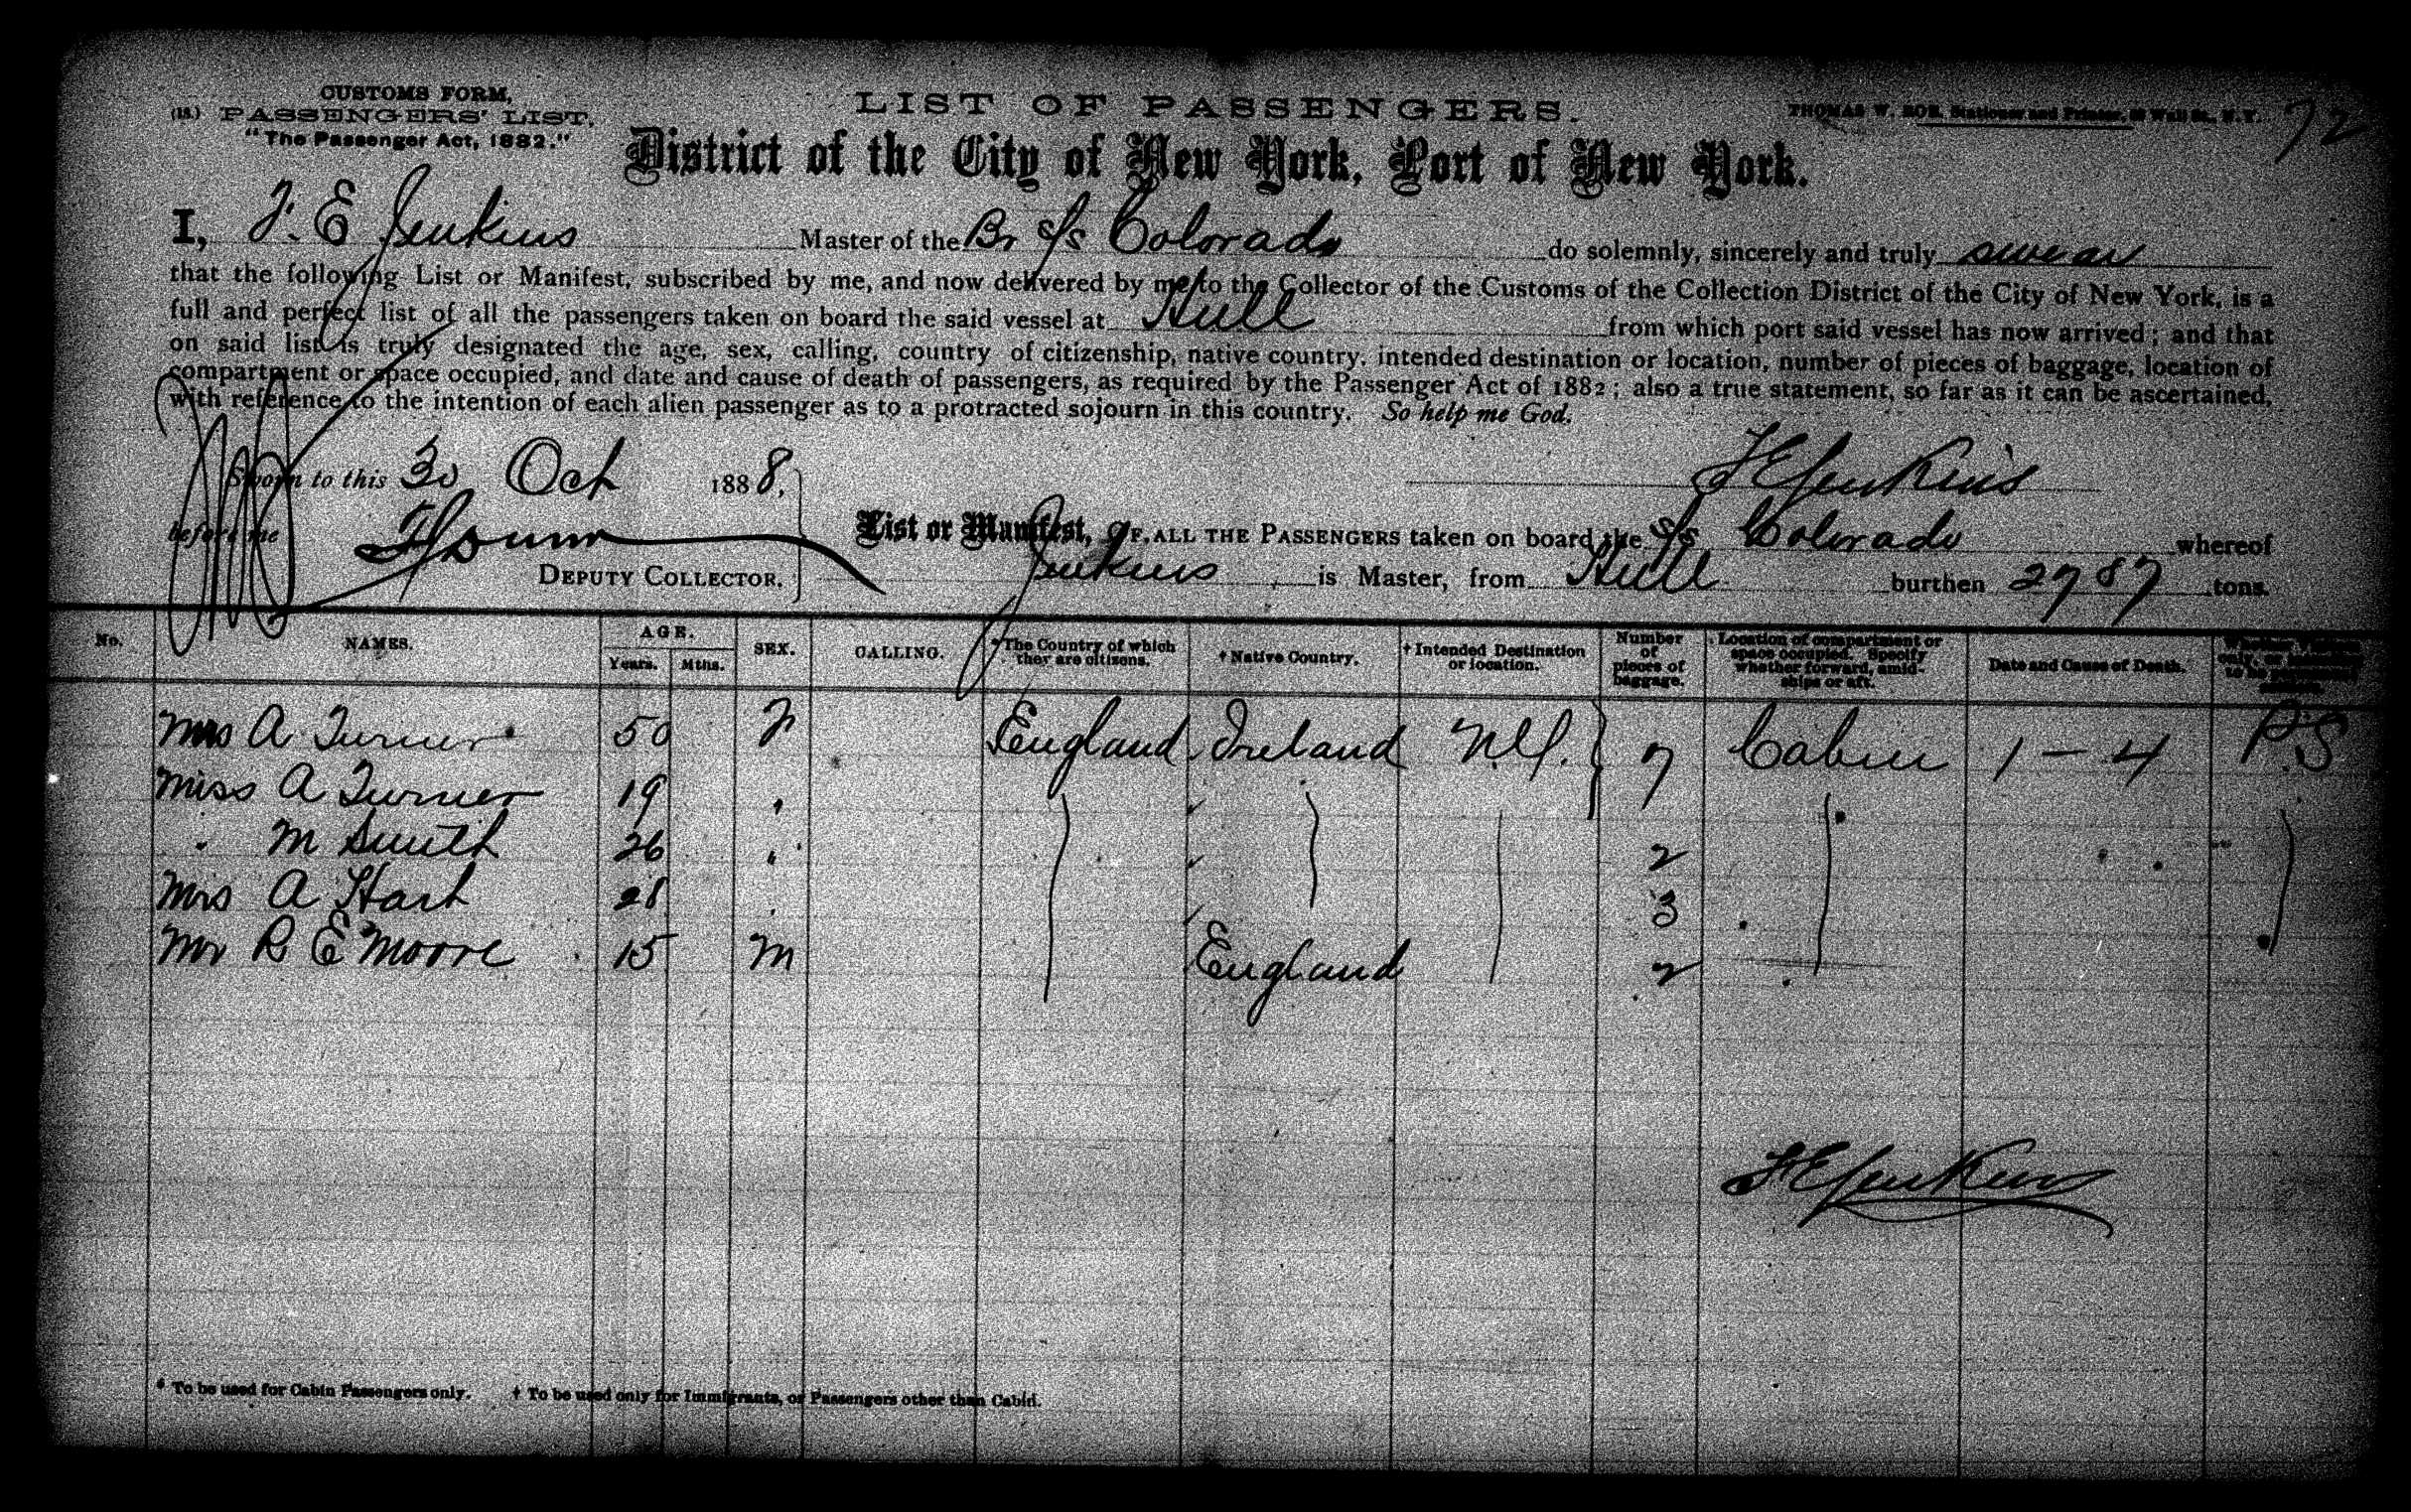 CUSTOMS FORM,
(15.) PASSENGERS' LIST,
"The Passenger Act, 1882."
LIST OF PASSENGERS.
THOMAS W. ROE, Stationer and Printer, Wall St., N.Y.
72
District of the City of New York, Port of New York.
I, F. E Jenkins Master of the Br S/s Colorado do solemnly, sincerely and truly swear
that the following List or Manifest, subscribed by me, and now delivered by me to the Collector of the Customs of the Collection District of the City of New York, is a
full and perfect list of all the passengers taken on board the said vessel at Hull from which port said vessel has now arrived; and that
on said list is truly designated the age, sex, calling, country of citizenship, native country, intended destination or location, number of pieces of baggage, location of
compartment or space occupied, and date and cause of death of passengers, as required by the Passenger Act of 1882; also a true statement, so far as it can be ascertained,
with reference to the intention of each alien passenger as to a protracted sojourn in this country. So help me God.
Sworn to this 30 Oct 1888,
F E Jenkins
before me
DEPUTY COLLECTOR.
List or Manifest, OF ALL THE PASSENGERS taken on board the S/s Colorado whereof
Jenkins is Master, from Hull burthen 2787 tons.
No. NAMES. AGE. Years. Mths. SEX. CALLING. *The Country of which they are citizens. †Native Country. †Intended Destination or location. Number of pieces of baggage. Location of compartment or space occupied. Specify whether forward, amidships or aft. Date and Cause of Death.
Mrs A Turner 50 F England Ireland N.Y. 7 Cabin 1 – 4 P.S
Miss A Turner 19 "
" M Smith 26 " 2
Mrs A Hart 28 " 3
Mr R E Moore 15 M England 2
F E Jenkins
* To be used for Cabin Passengers only. † To be used only for Immigrants, or Passengers other than Cabin.